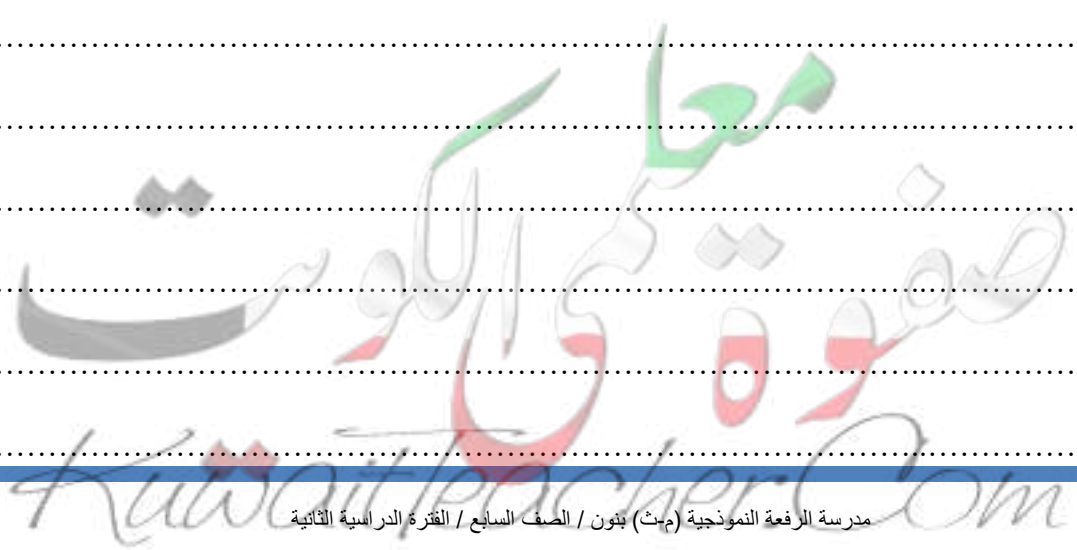 صفوة معلمى الكويت
KuwaitTeacher.Com
مدرسة الرفعة النموذجية (م-ث) بنون / الصف السابع / الفترة الدراسية الثانية